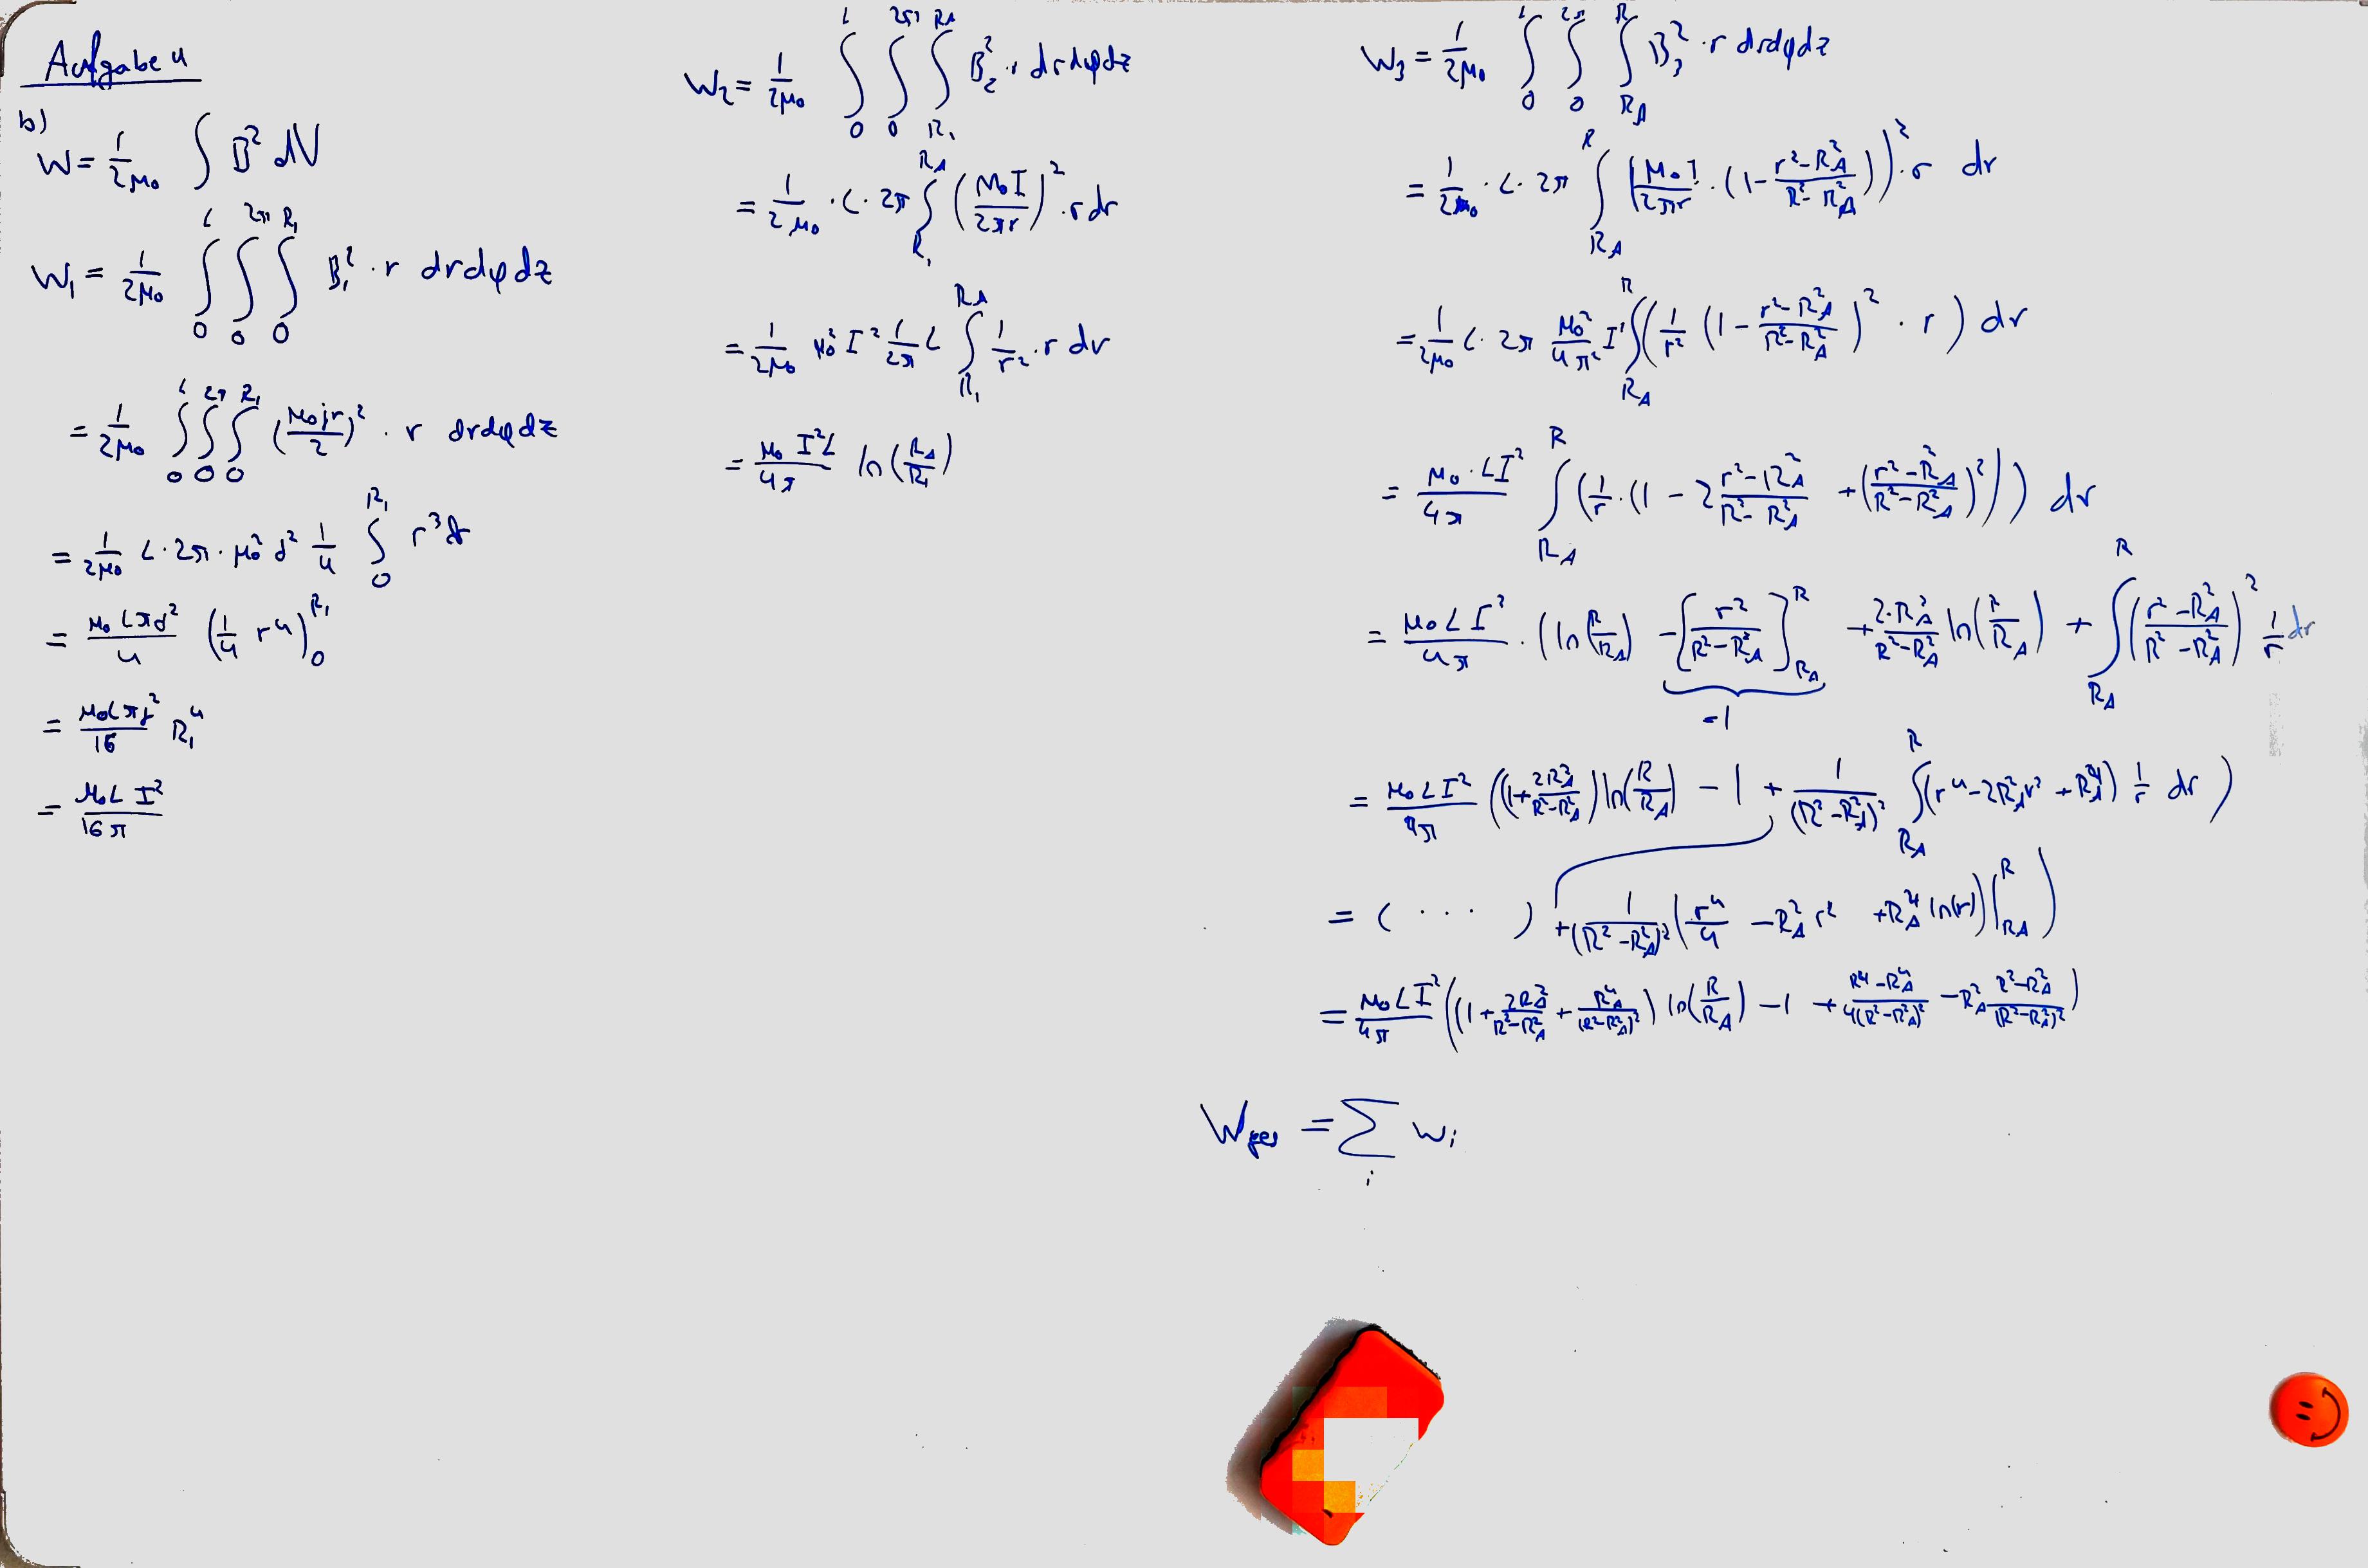 Aufgabe 4
b)
W = 1/(2μ₀) ∫ B² dV
W₁ = 1/(2μ₀) ∫₀^L ∫₀^2π ∫₀^R₁ B₁² · r dr dφ dz
= 1/(2μ₀) ∫₀^L ∫₀^2π ∫₀^R₁ (μ₀jr/2)² · r dr dφ dz
= 1/(2μ₀) L · 2π · μ₀² j² 1/4 ∫₀^R₁ r³ dr
= μ₀Lπj²/4 (1/4 r⁴)₀^R₁
= μ₀Lπj²/16 R₁⁴
= μ₀L I²/(16π)
W₂ = 1/(2μ₀) ∫₀^L ∫₀^2π ∫_R₁^R_A B₂² · r dr dφ dz
= 1/(2μ₀) · L · 2π ∫_R₁^R_A (μ₀I/(2πr))² · r dr
= 1/(2μ₀) μ₀² I² 1/(2π) L ∫_R₁^R_A 1/r² · r dr
= μ₀ I² L/(4π) ln(R_A/R₁)
W₃ = 1/(2μ₀) ∫₀^L ∫₀^2π ∫_R_A^R B₃² · r dr dφ dz
= 1/(2μ₀) · L · 2π ∫_R_A^R (μ₀I/(2πr) · (1 - (r²-R_A²)/(R²-R_A²)))² · r dr
= 1/(2μ₀) L · 2π μ₀²/(4π²) I² ∫_R_A^R (1/r² (1 - (r²-R_A²)/(R²-R_A²))² · r) dr
= μ₀ · LI²/(4π) ∫_R_A^R (1/r · (1 - 2 (r²-R_A²)/(R²-R_A²) + ((r²-R_A²)/(R²-R_A²))²)) dr
= μ₀LI²/(4π) · (ln(R/R_A) - [r²/(R²-R_A²)]_R_A^R + 2·R_A²/(R²-R_A²) ln(R/R_A) + ∫_R_A^R ((r²-R_A²)/(R²-R_A²))² 1/r dr
=1
= μ₀LI²/(4π) ((1+2R_A²/(R²-R_A²)) ln(R/R_A) - 1 + 1/(R²-R_A²)² ∫_R_A^R (r⁴-2R_A²r²+R_A⁴) 1/r dr)
= ( · · · ) + 1/(R²-R_A²)² (r⁴/4 - R_A² r² + R_A⁴ ln(r))|_R_A^R)
= μ₀LI²/(4π) ((1+2R_A²/(R²-R_A²)+R_A⁴/(R²-R_A²)²) ln(R/R_A) - 1 + (R⁴-R_A⁴)/(4(R²-R_A²)²) - R_A² (R²-R_A²)/(R²-R_A²)²)
W_ges = Σ_i W_i